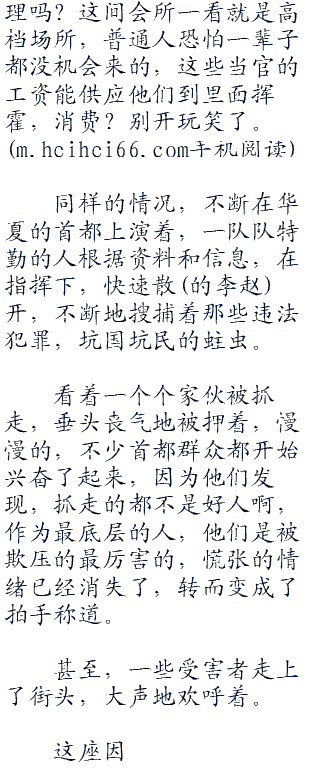 理吗？这间会所一看就是高
档场所，普通人恐怕一辈子
都没机会来的，这些当官的
工资能供应他们到里面挥
霍，消费？别开玩笑了。
(m.hcihci66.com手机阅读)
同样的情况，不断在华
夏的首都上演着，一队队特
勤的人根据资料和信息，在
指挥下，快速散(的李赵)
开，不断地搜捕着那些违法
犯罪，坑国坑民的蛀虫。
看着一个个家伙被抓
走，垂头丧气地被押着，漫
漫的，不少首都群众都开始
兴奋了起来，因为他们发
现，抓走的都不是好人啊，
作为最底层的人，他们是被
欺压的最厉害的，慌张的情
绪已经消失了，转而变成了
拍手称道。
甚至，一些受害者走上
了街头，大声地欢呼着。
这座因